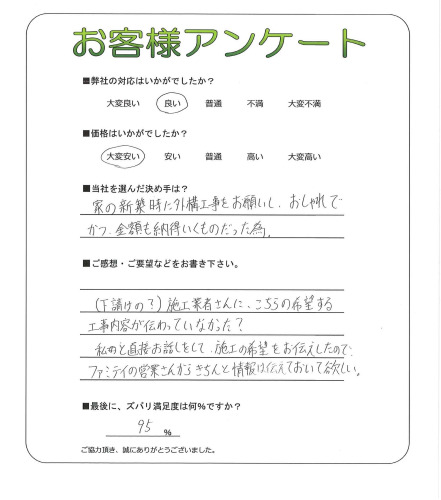 お客様アンケート
■弊社の対応はいかがでしたか？
大変良い 良い 普通 不満 大変不満
■価格はいかがでしたか？
大変安い 安い 普通 高い 大変高い
■当社を選んだ決め手は？
家の新築時に外構工事をお願いし、おしゃれで
かつ、金額も納得いくものだった為。
■ご感想・ご要望などをお書き下さい。
(下請けの？)施工業者さんに、こちらの希望する
工事内容が伝わっていなかった？
直接お話しをして、施工の希望をお伝えしたので、
ファミテイの営業さんからきちんと情報は伝えておいて欲しい。
■最後に、ズバリ満足度は何%ですか？
95 %
ご協力頂き、誠にありがとうございました。